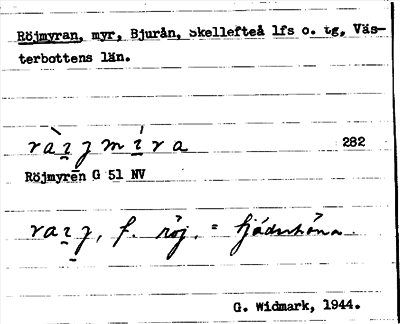 Röjmyran, myr, Bjurån, Skellefteå lfs o. tg, Väs-
terbottens län.
ràı̱ȷmı̱́ra 282
Röjmyren G 51 NV
raı̱ȷ, f. röj, = fjäderhöna.
G. Widmark, 1944.